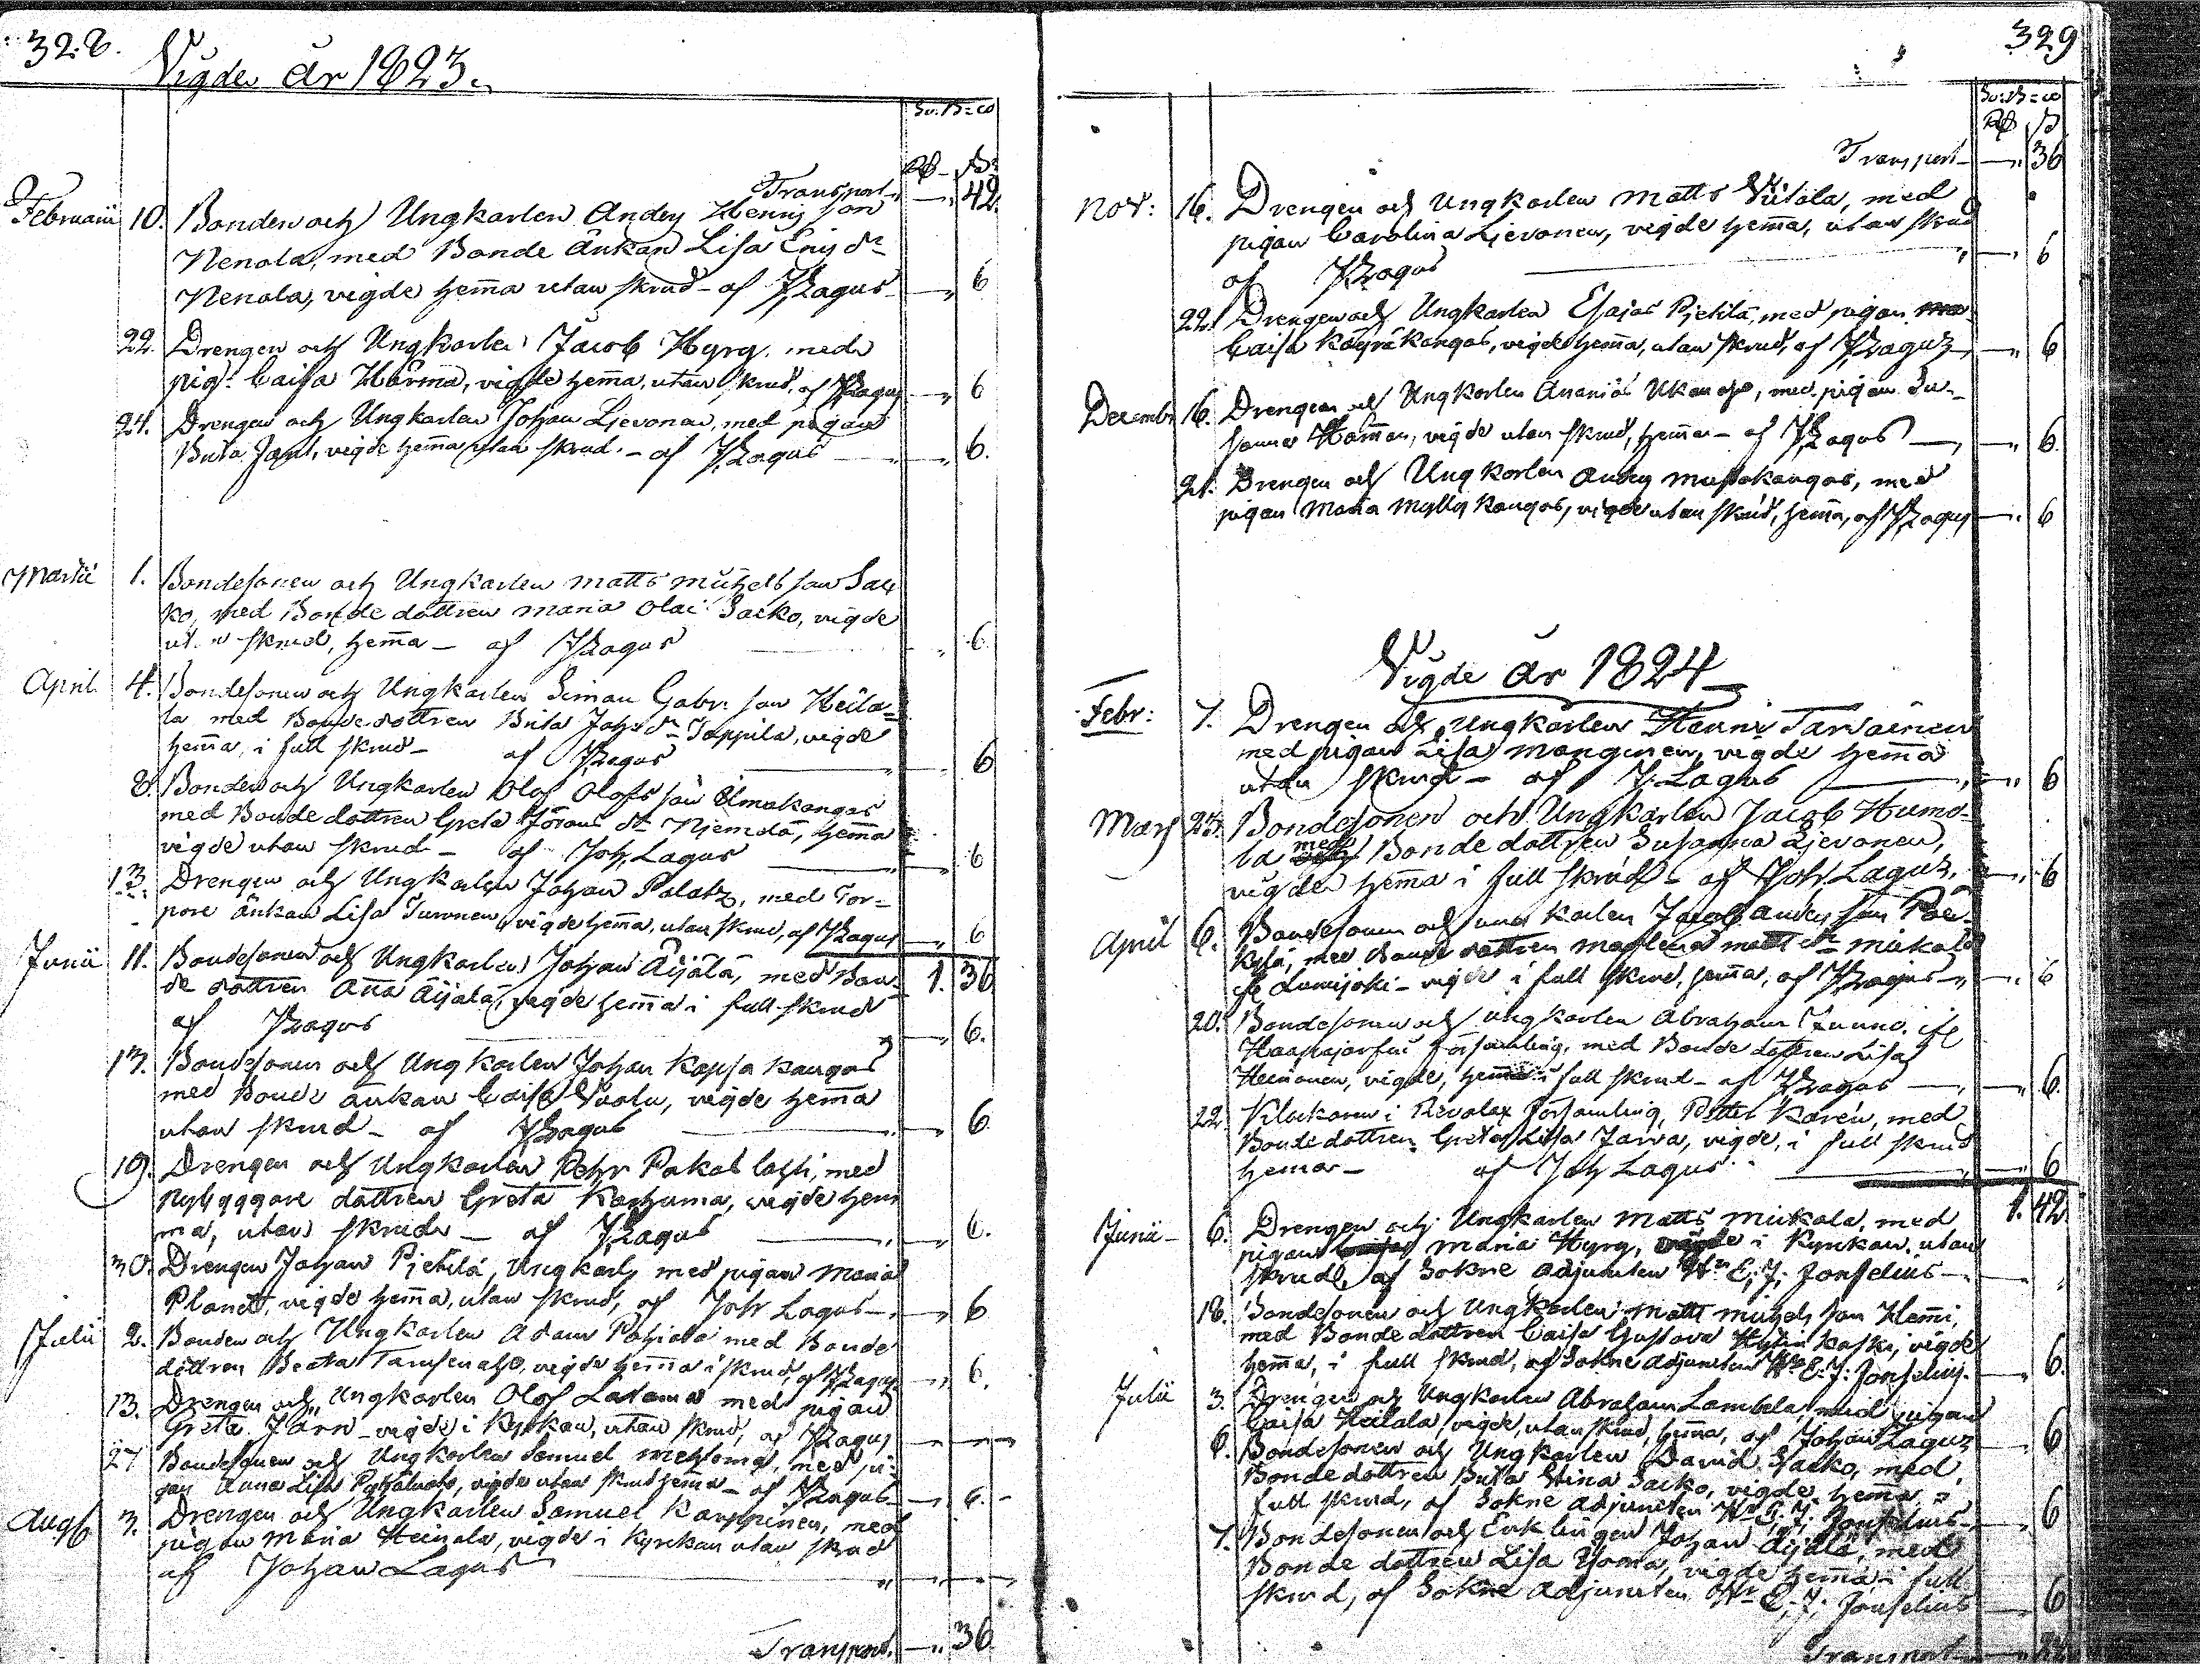 328.
Vigde år 1823.
Sv. B=co
Rd – s.
Transport – „ 42.
Februarii 10. Bonden och Ungkarlen Anders Henrics son
Nenola, med Bonde änkan Lisa Erics dr
Nenola, vigde hemma utan skrud – af J Lagus – „ 6
22. Drengen och Ungkarlen Jacob Hyry, med
pig. Caisa Härmä, vigde hemma, utan skrud, af J Lagus – „ 6
24. Drengen och Ungkarlen Johan Ljevonen, med pigan
Brita, vigde hemma utan skrud. – af J Lagus – „ 6.
Martii 1. Bondesonen och Ungkarlen Matts Michels son Sac
ko, med Bonde dottren Maria Olai Sacko, vigde
skrud, hemma – af J Lagus „ 6
April 4. Bondesonen och Ungkarlen Simon Gabr. son Heila=
la med Bonde dottren Brita Joh. dr Toppila, vigde
hemma, i full skrud – af J Lagus – „ 6
8. Bonden och Ungkarlen Olof Olofs son Ulmakangas
med Bonde dottren Greta Jörans dr Njemelä, hemma
vigde utan skrud – af Joh. Lagus – „ 6
13. Drengen och Ungkarlen Johan Palatz, med Tor=
pare änkan Lisa Turunen, vigde hemma, utan skrud, af J Lagus – „ 6
1. 36
Junii 11. Bondesonen och Ungkarlen Johan Äijälä, med Bon=
de dottren Anna Äijälä, vigde hemma i full skrud
af J Lagus – „ 6.
13. Bondesonen och Ungkarlen Johan Kopsakangas
med Bonde änkan Caisa Vuolu, vigde hemma
utan skrud – af J Lagus – „ 6
19. Drengen och Ungkarlen Pehr Pakaslahti, med
Nybyggare dottren Greta Karhuma, vigde hem
ma, utan skrud – af J Lagus – „ 6.
30. Drengen Johan Pjetilä, Ungkarl, med pigan Maria
Planet, vigde hemma, utan skrud, af Joh Lagus – „ 6
Julii 2. Bonden och Ungkarlen Adam Pohjola med Bonde
dottren Beata, vigde hemma i skrud, af J Lagus – „ 6.
13. Drengen och Ungkarlen Olof Latomaa med pigan
Greta Järn – vigde i Kyrkan, utan skrud, af J Lagus
27 Bondesonen och Ungkarlen Samuel, med pi=
gan Anna Lisa, vigde utan skrud hemma – af J Lagus – 6. –
Aug. 3. Drengen och Ungkarlen Samuel Karppinen, med
pigan Maria Heinola, vigde i Kyrckan utan skrud
af Johan Lagus
Transport. – „ 36
329
Sv. B=co
Rd s
Transport – „ 36
Nov: 16. Drengen och Ungkarlen Matts Viitala, med
pigan Carolina Ljevonen, vigde hemma, utan skrud
af J Lagus – „ 6
22. Drengen och Ungkarlen Esajas Pjetilä, med pigan
Caisa Käyräkangas, vigde hemma, utan skrud, af J Lagus – „ 6
Decembr 16. Drengen och Ungkarlen Ananias Ukonaho, med pigan Su=
sanna, vigde utan skrud, hemma – af J Lagus – „ 6
21. Drengen och Ungkarlen Anders Mustakangas, med
pigan Maria Myllykangas, vigde utan skrud, hemma, af J Lagus – „ 6
Vigde år 1824
Febr: 7. Drengen och Ungkarlen Henric Tarvainen
med pigan Lisa Manginen, vigde hemma
utan skrud – af J. Lagus – „ 6
Mars 23. Bondesonen och Ungkarlen Jacob Humo=
la med Bonde dottren Susanna Ljevonen,
vigde hemma i full skrud – af Joh Lagus, – „ 6
April 6. Bondesonen och ung karlen Jacob Anders son
kylä, med Bonde dottren Maglena Matts dr Mickola
Lumijoki – vigde i full skrud, hemma, af J Lagus – „ 6
20. Bondesonen och ungkarlen Abraham Junno, ifr
Haapajärfvi Församling, med Bonde dottren Lisa
Heinonen, vigde, hemma i full skrud – af J Lagus – „ 6.
22. Klockaren i Revolax Församling, Petter Karén, med
Bonde dottren Greta Lisa Jarva, vigde, i full skrud
hemma – af Joh Lagus – „ 6
1. 42
Junii – 6. Drengen och Ungkarlen Matts Mickola, med
pigan Maria Hyry, vigde i Kyrckan, utan
skrud, af Sokne Adjuncten Hr E. J. Jonselius –
18. Bondesonen och Ungkarlen Matts Michels son Hemmi,
med Bonde dottren Caisa Gustava, vigde
hemma, i full skrud, af Sokne adjuncten Hr E. J. Jonselius. – „ 6.
Julii 3. Drengen och Ungkarlen Abraham Lambela, med pigan
Caisa Heilala, vigde, utan skrud, hemma, af Johan Lagus – 6
6. Bondesonen och Ungkarlen David Sacko, med
Bonde dottren Brita Stina Sacko, vigde hemma i
full skrud, af Sokne adjuncten Hr E. J. Jonselius – 6
7. Bondesonen och Enklingen Johan Äijälä, med
Bonde dottren Lisa, vigde hemma i full
skrud, af Sokne Adjuncten Hr E. J. Jonselius – 6
Transport